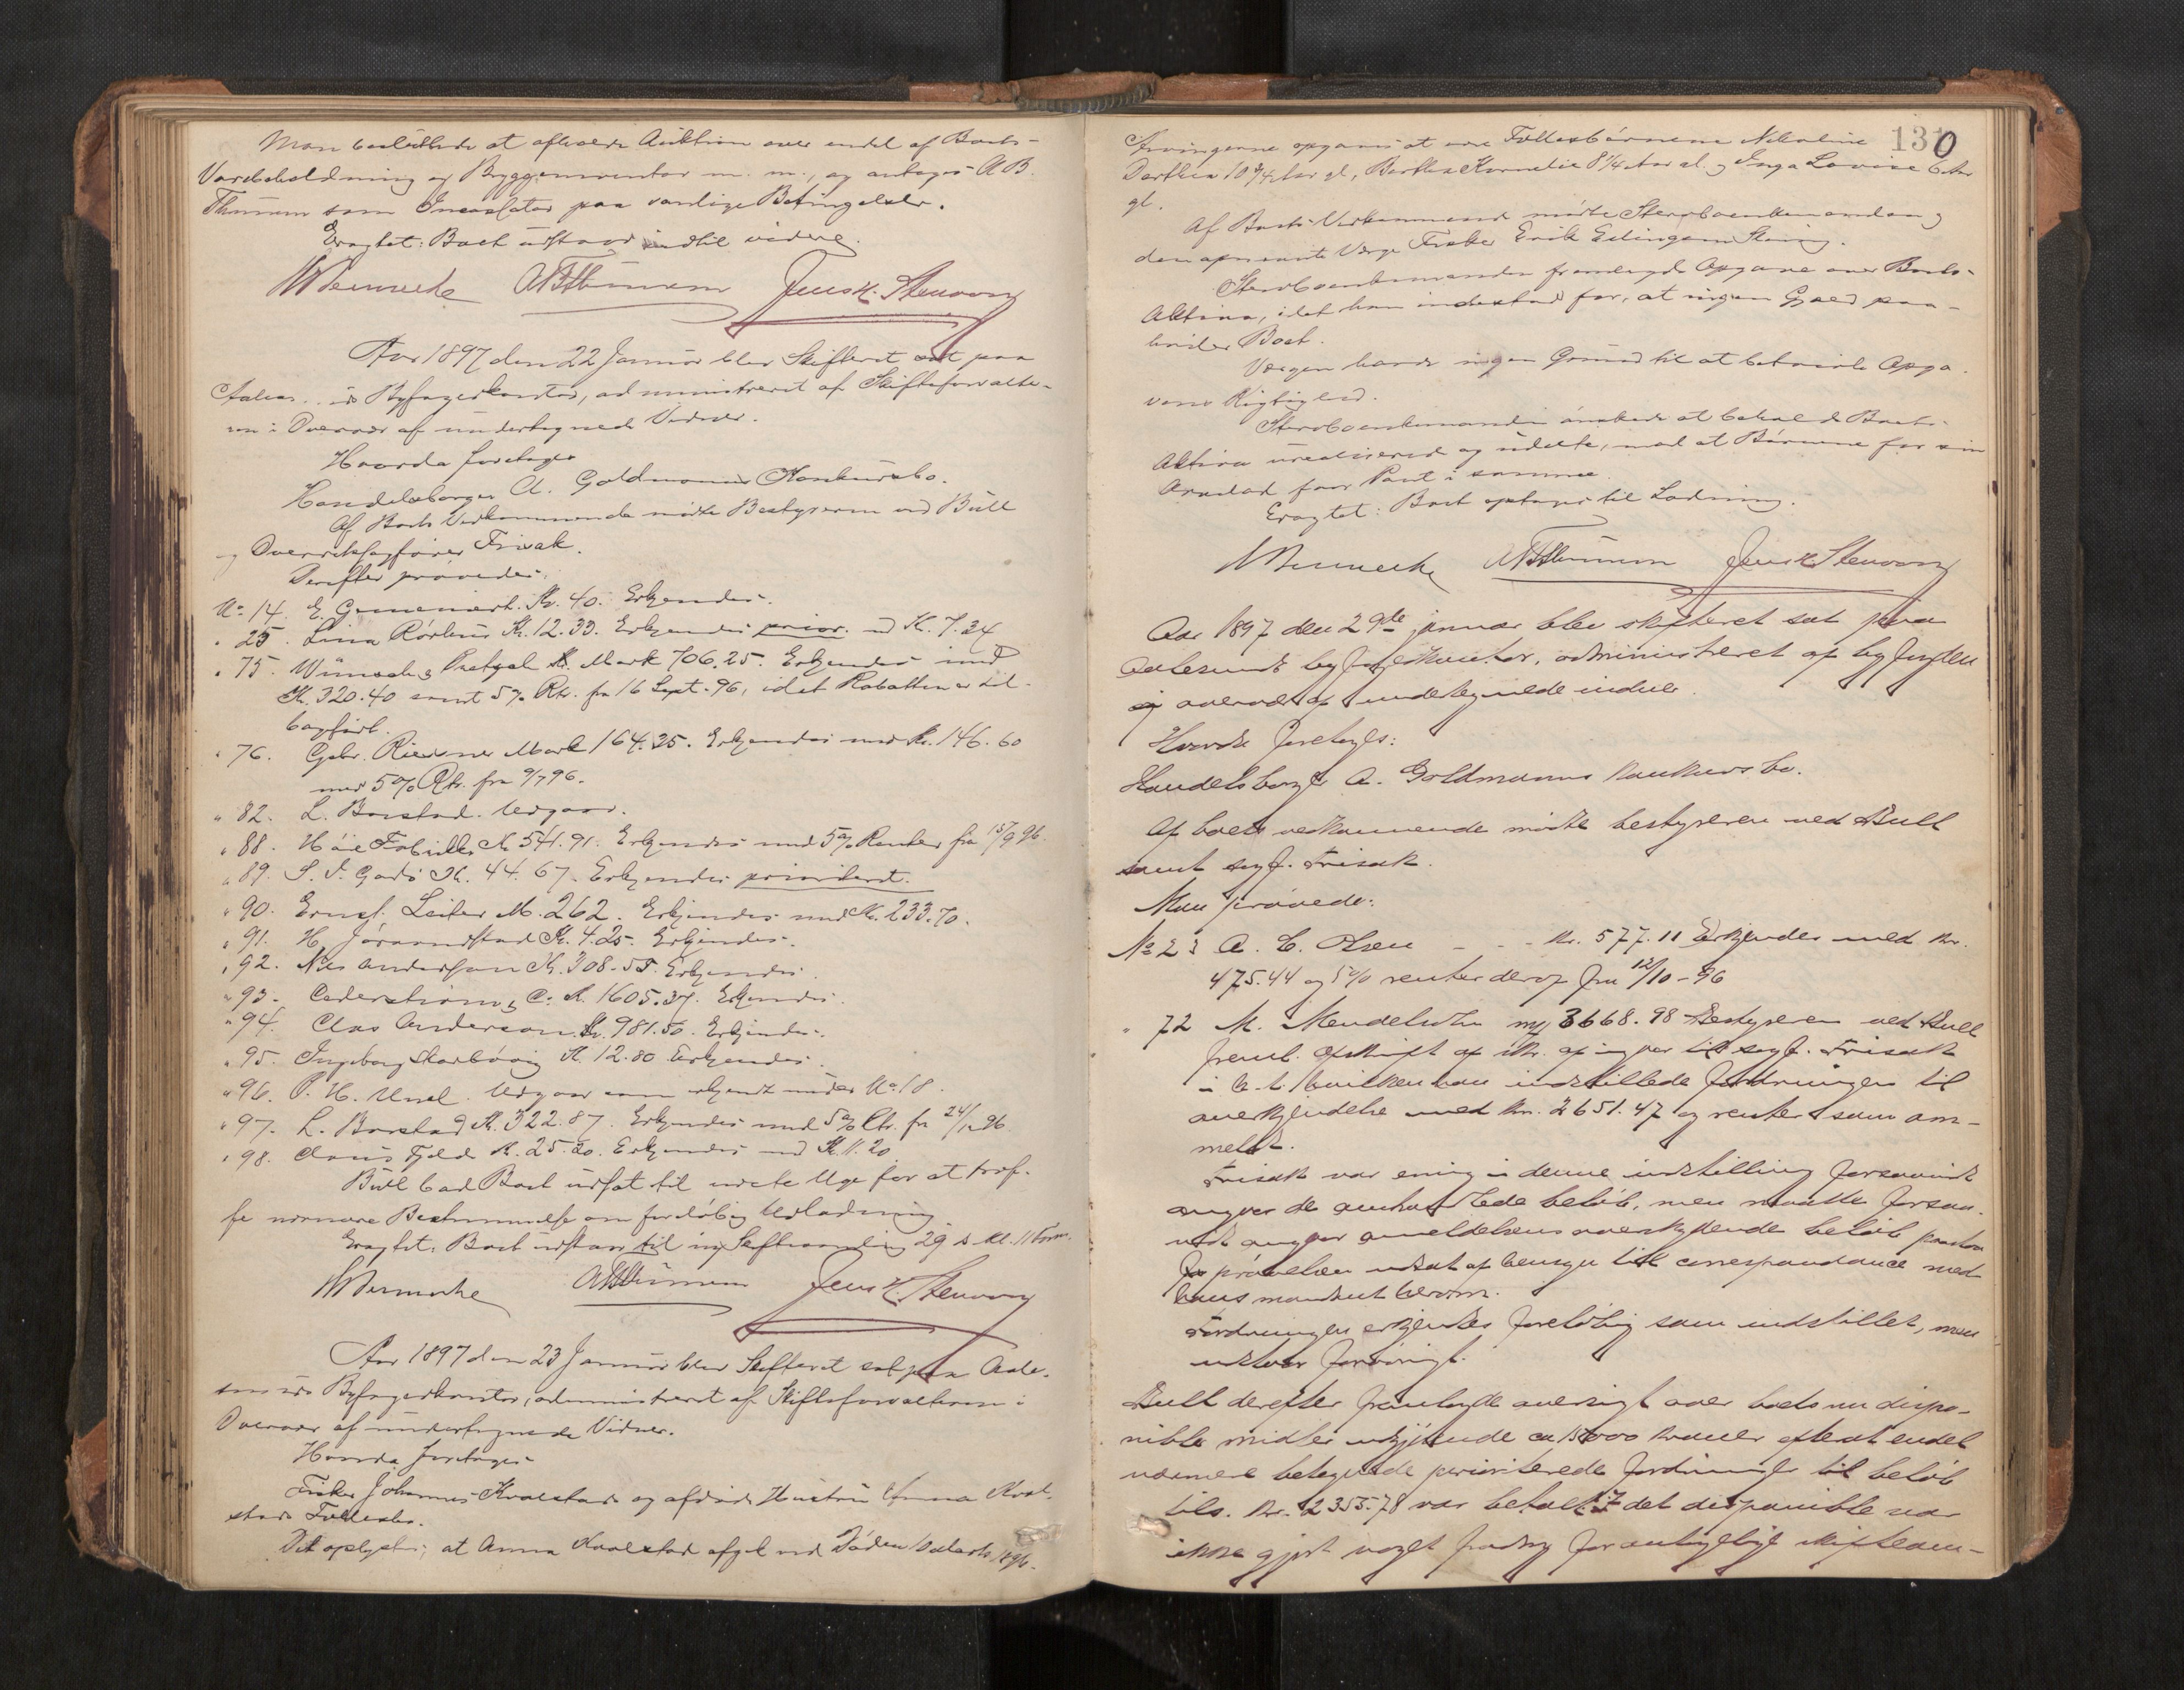 Man besluttede at afholde Auktion over endel af Boets
Varebeholdning og Bryggeinventar m. m., og antoges A B
Thurmann som Incassator paa vanlige Betingelser.
Eragtet: Boet udstaar indtil videre.
Aar 1897 den 22 Januar blev Skifteret sat paa
Aalesunds Byfogedkontor, administreret af Skifteforvalte-
ren i Overvær af undertegnede Vidner.
Hvorda foretoges
Handelsborger A. Goldmanns Konkursbo.
Af Boets Vedkommende mødte Bestyreren ved Bull
og Overretssagfører Frisak.
Derefter prøvedes:
No 14. E. Kr. 40. Erkjendes.
" 25. Lina Kr. 12.33. Erkjendes prior. m Kr. 7.34
" 75. Wünsche & Pretzel Mark 706.25. Erkjendes med
Kr. 320.40 samt 5% Rtr. fra 16 Sept. 96, idet Rabatten er til-
bagført.
" 76. Gebr. Mark 164.25. Erkjendes med Kr. 146.60
med 5% Rtr. fra 9/7 96.
" 82. L. Borstad. Udgaar.
" 88. Høie Fabriker Kr 541.91. Erkjendes med 5% Renter fra 15/9 96.
" 89. S. I. Godø Kr. 44.67. Erkjendes prioriteret.
" 90. Ernst Leiter M. 262. Erkjendes med Kr. 233.70.
" 91. H. Kr. 4.25. Erkjendes.
" 92. Nils Anderson Kr. 308.55. Erkjendes.
" 93. Cederstrøm & Co Kr. 1605.37. Erkjendes.
" 94. Clas Anderson Kr. 981.50. Erkjendes.
" 95. Ingeborg Skarbøvig Kr 12.80 Erkjendes.
" 96. P. H. Udgaar som erkjendt under No 18.
" 97. L. Borstad Kr. 322.87. Erkjendes med 5% Rtr. fra 24/12 96.
" 98. Claus Fjeld Kr. 25.20. Erkjendes med Kr. 11.20
Bull bad Boet udsat til næste Uge for at træf-
fe nærmere Bestemmelse om foreløbig Udlodning
Eragtet: Boet udstaar til ny Skiftesamling 29 ds Kl. 11 Form.
Aar 1897 den 23 Januar blev Skifteret sat paa Aale-
sunds Byfogedkontor, administreret af Skifteforvalteren i
Overvær af undertegnede Vidner.
Hvorda foretoges
Fisker Johannes Kvalstad og afdøde Hustru Anna Kval-
stads Fællesbo.
Det oplystes, at Anna Kvalstad afgik ved Døden 1896.
130
Arvingerne opgaves at være Fællesbørnene Nikoline
Dorthea 10 3/4 Aar gl, Berthe Kornelie 8 1/4 Aar gl. og Inga Lovise 6 Aar
gl.
Af Boets Vedkommende mødte Sterboenkemanden og
den opnævnte Verge Fisker Erik
Sterboenkemanden fremlagde Opgave over Boets
Aktiva, idet han indestod for, at ingen Gjæld paa-
hviler Boet.
Vergen havde ingen Grund til at betvivle Opga-
vens Rigtighed.
Sterboenkemanden ønskede at beholde Boets
Aktiva urealiseret og udelte, mod at Børnene for sin
Arvelod faar Pant i samme.
Eragtet: Boet optages til Lodning.
Aar 1897 den 29de januar blev skifteret sat paa
Aalesunds byfogedkontor, administreret af byfogden
i overvær af undertegnede vidner.
Hvorda foretoges:
Handelsborger A. Goldmanns konkursbo.
Af boets vedkommende mødte bestyreren ved Bull
samt sagf. Frisak.
Man prøvede:
No 23 A. C. Olsen - - - Kr. 577.11 Erkjendes med Kr.
475.44 og 5% renter deraf fra 12/10 - 96
" 72 M. Mendelsohn 3668.98 Bestyreren ved Bull
freml. afskrift af skr. af igaar til sagf. Frisak
i hvilken han indstillede fordringen til
anerkjendelse med Kr. 2651.47 og renter som an-
meldt.
Frisak var enig i denne indstilling forsaavidt
angaar de anbefalede beløb, men maatte forsaa-
vidt angaar anmeldelsens overskydende beløb paastaa
prøvelsen udsat af hensyn til correspondance med
hans mandant herom.
Fordringen erkjendes foreløbig som indstillet, men
udstaar forøvrigt.
Bull derefter fremlagde oversigt over boets nu dispo-
nible midler udgjørende ca 15000 kroner efterat endel
nærmere betegnede prioriterede fordringer til beløb
tils. Kr. 2355.78 var betalt. I det disponible var
ikke gjort noget fradrag for antagelige